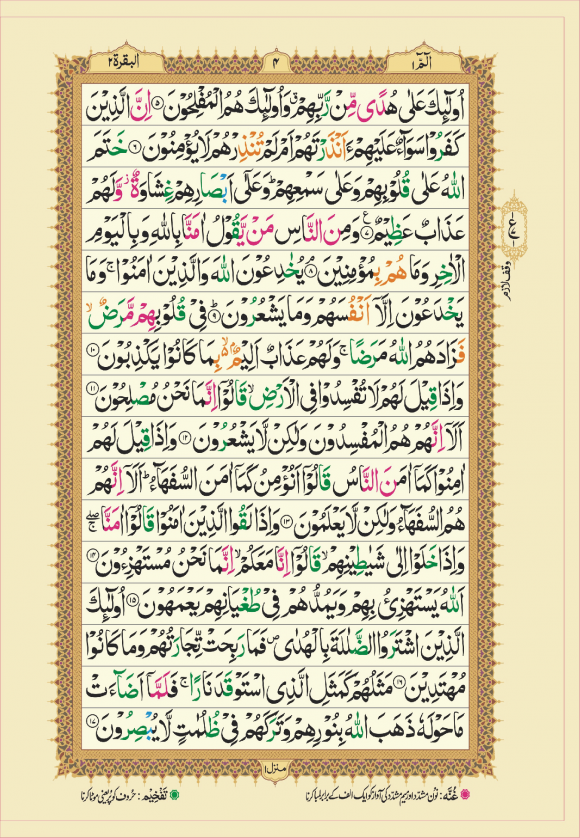 الٓمّٓ ۱
۴
البقرة ۲
اُولٰٓئِكَ عَلٰی هُدًی مِّنْ رَّبِّهِمْ ۙ وَاُولٰٓئِكَ هُمُ الْمُفْلِحُوْنَ ۵ اِنَّ الَّذِیْنَ
كَفَرُوْا سَوَآءٌ عَلَیْهِمْ ءَاَنْذَرْتَهُمْ اَمْ لَمْ تُنْذِرْهُمْ لَا یُؤْمِنُوْنَ ۶ خَتَمَ
اللّٰهُ عَلٰی قُلُوْبِهِمْ وَعَلٰی سَمْعِهِمْ ؕ وَعَلٰۤی اَبْصَارِهِمْ غِشَاوَةٌ ؗ وَّلَهُمْ
عَذَابٌ عَظِیْمٌ ۷ ع وَمِنَ النَّاسِ مَنْ یَّقُوْلُ اٰمَنَّا بِاللّٰهِ وَبِالْیَوْمِ
الْاٰخِرِ وَمَا هُمْ بِمُؤْمِنِیْنَ ۘ ۸ یُخٰدِعُوْنَ اللّٰهَ وَالَّذِیْنَ اٰمَنُوْا ۚ وَمَا
یَخْدَعُوْنَ اِلَّاۤ اَنْفُسَهُمْ وَمَا یَشْعُرُوْنَ ؕ ۹ فِیْ قُلُوْبِهِمْ مَّرَضٌ ۙ
فَزَادَهُمُ اللّٰهُ مَرَضًا ۚ وَلَهُمْ عَذَابٌ اَلِیْمٌۢ ۙ۬ بِمَا كَانُوْا یَكْذِبُوْنَ ۱۰
وَاِذَا قِیْلَ لَهُمْ لَا تُفْسِدُوْا فِی الْاَرْضِ ۙ قَالُوْۤا اِنَّمَا نَحْنُ مُصْلِحُوْنَ ۱۱
اَلَاۤ اِنَّهُمْ هُمُ الْمُفْسِدُوْنَ وَلٰكِنْ لَّا یَشْعُرُوْنَ ۱۲ وَاِذَا قِیْلَ لَهُمْ
اٰمِنُوْا كَمَاۤ اٰمَنَ النَّاسُ قَالُوْۤا اَنُؤْمِنُ كَمَاۤ اٰمَنَ السُّفَهَآءُ ؕ اَلَاۤ اِنَّهُمْ
هُمُ السُّفَهَآءُ وَلٰكِنْ لَّا یَعْلَمُوْنَ ۱۳ وَاِذَا لَقُوا الَّذِیْنَ اٰمَنُوْا قَالُوْۤا اٰمَنَّا ۖۚ
وَاِذَا خَلَوْا اِلٰی شَیٰطِیْنِهِمْ ۙ قَالُوْۤا اِنَّا مَعَكُمْ ۙ اِنَّمَا نَحْنُ مُسْتَهْزِءُوْنَ ۱۴
اَللّٰهُ یَسْتَهْزِئُ بِهِمْ وَیَمُدُّهُمْ فِیْ طُغْیَانِهِمْ یَعْمَهُوْنَ ۱۵ اُولٰٓئِكَ
الَّذِیْنَ اشْتَرَوُا الضَّلٰلَةَ بِالْهُدٰی ۪ فَمَا رَبِحَتْ تِّجَارَتُهُمْ وَمَا كَانُوْا
مُهْتَدِیْنَ ۱۶ مَثَلُهُمْ كَمَثَلِ الَّذِی اسْتَوْقَدَ نَارًا ۚ فَلَمَّاۤ اَضَآءَتْ
مَا حَوْلَهٗ ذَهَبَ اللّٰهُ بِنُوْرِهِمْ وَتَرَكَهُمْ فِیْ ظُلُمٰتٍ لَّا یُبْصِرُوْنَ ۱۷
وقف لازم
منزل ۱
غُنَّه: نون مشدد اور میم مشدد کی آواز کو ایک الف کے برابر لمبا کرنا
تَفْخِیْم: حروف کو پُر یعنی موٹا کرنا